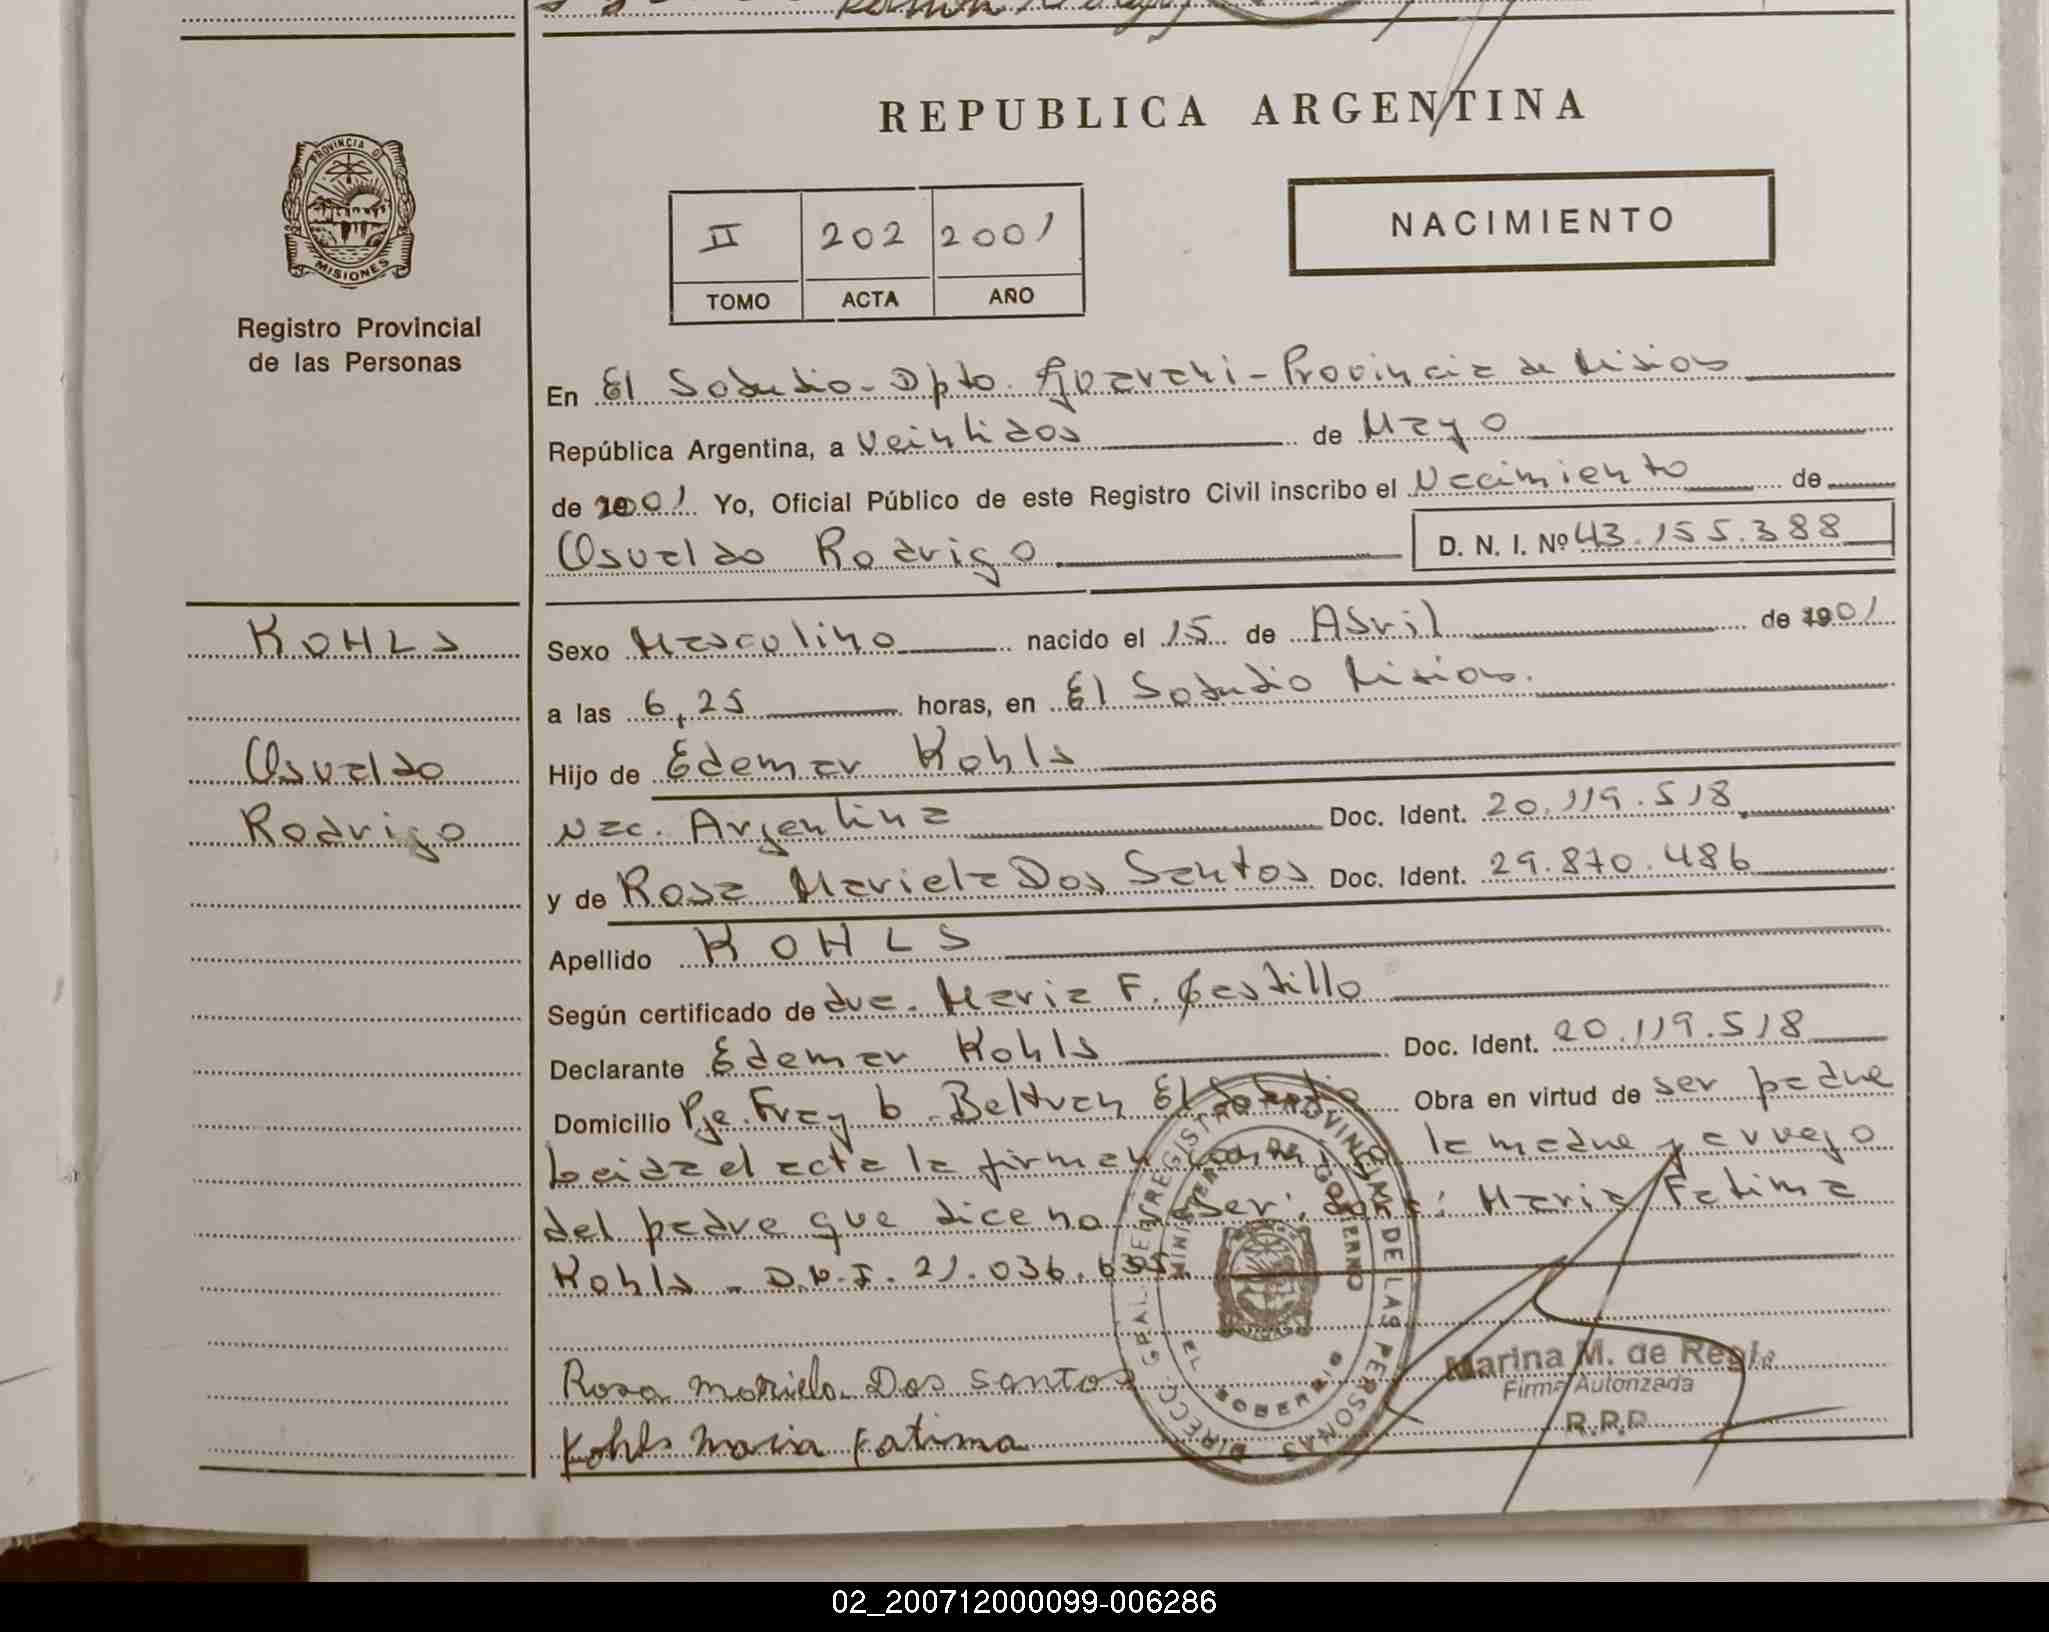 REPUBLICA ARGENTINA
PROVINCIA DE
MISIONES
Registro Provincial
de las Personas
II 202 2001
TOMO ACTA AÑO
NACIMIENTO
En El Soberbio - Dpto. Guarani - Provincia de Misiones
República Argentina, a Veintidos de Mayo
de 2001 Yo, Oficial Público de este Registro Civil inscribo el Nacimiento de
Osvaldo Rodrigo D. N. I. Nº 43.155.388
KOHLS
Osvaldo
Rodrigo
Sexo Masculino nacido el 15 de Abril de 1901
a las 6,25 horas, en El Soberbio Misiones.
Hijo de Edemar Kohls
Nac. Argentina Doc. Ident. 20.119.518
y de Rosa Mariela Dos Santos Doc. Ident. 29.870.486
Apellido KOHLS
Según certificado de dra. Maria F. Castillo
Declarante Edemar Kohls Doc. Ident. 20.119.518
Domicilio Pje. Fray b. Beltran El Soberbio Obra en virtud de ser padre
Leida el acta la firman la madre y a ruego
del padre que dice no doña: Maria Fatima
Kohls - D.N.I. 21.036.
Rosa mariela Dos santos
Kohls Maria fatima
DIRECC. GRAL. REGISTRO PROVINCIAL DE LAS PERSONAS
MINISTERIO DE GOBIERNO
EL SOBERBIO
Marina M. de
Firma Autorizada
R.P.P.
02_200712000099-006286